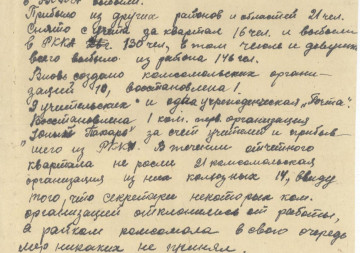 Прибыло из других районов и областей 21 чел.
Снято с учета за квартал 16 чел. и выбыли
в РККА 130 чел, в том числе и девушки
всего выбыло из района 146 чел.
Вновь создано комсомольских органи-
заций 10, восстановлена 1.
9 учительских и одна учрежденческая "Почта".
Восстановлена 1 ком. перв. организация
за счет учителей и прибыв-
шего из РККА. В течении отчетного
квартала не росло 21 комсомольская
организация из них колхозных 14, ввиду
того, что секретари некоторых ком.
организаций отклонились от работы,
а райком комсомола в свою очередь
мер никаких не принял.